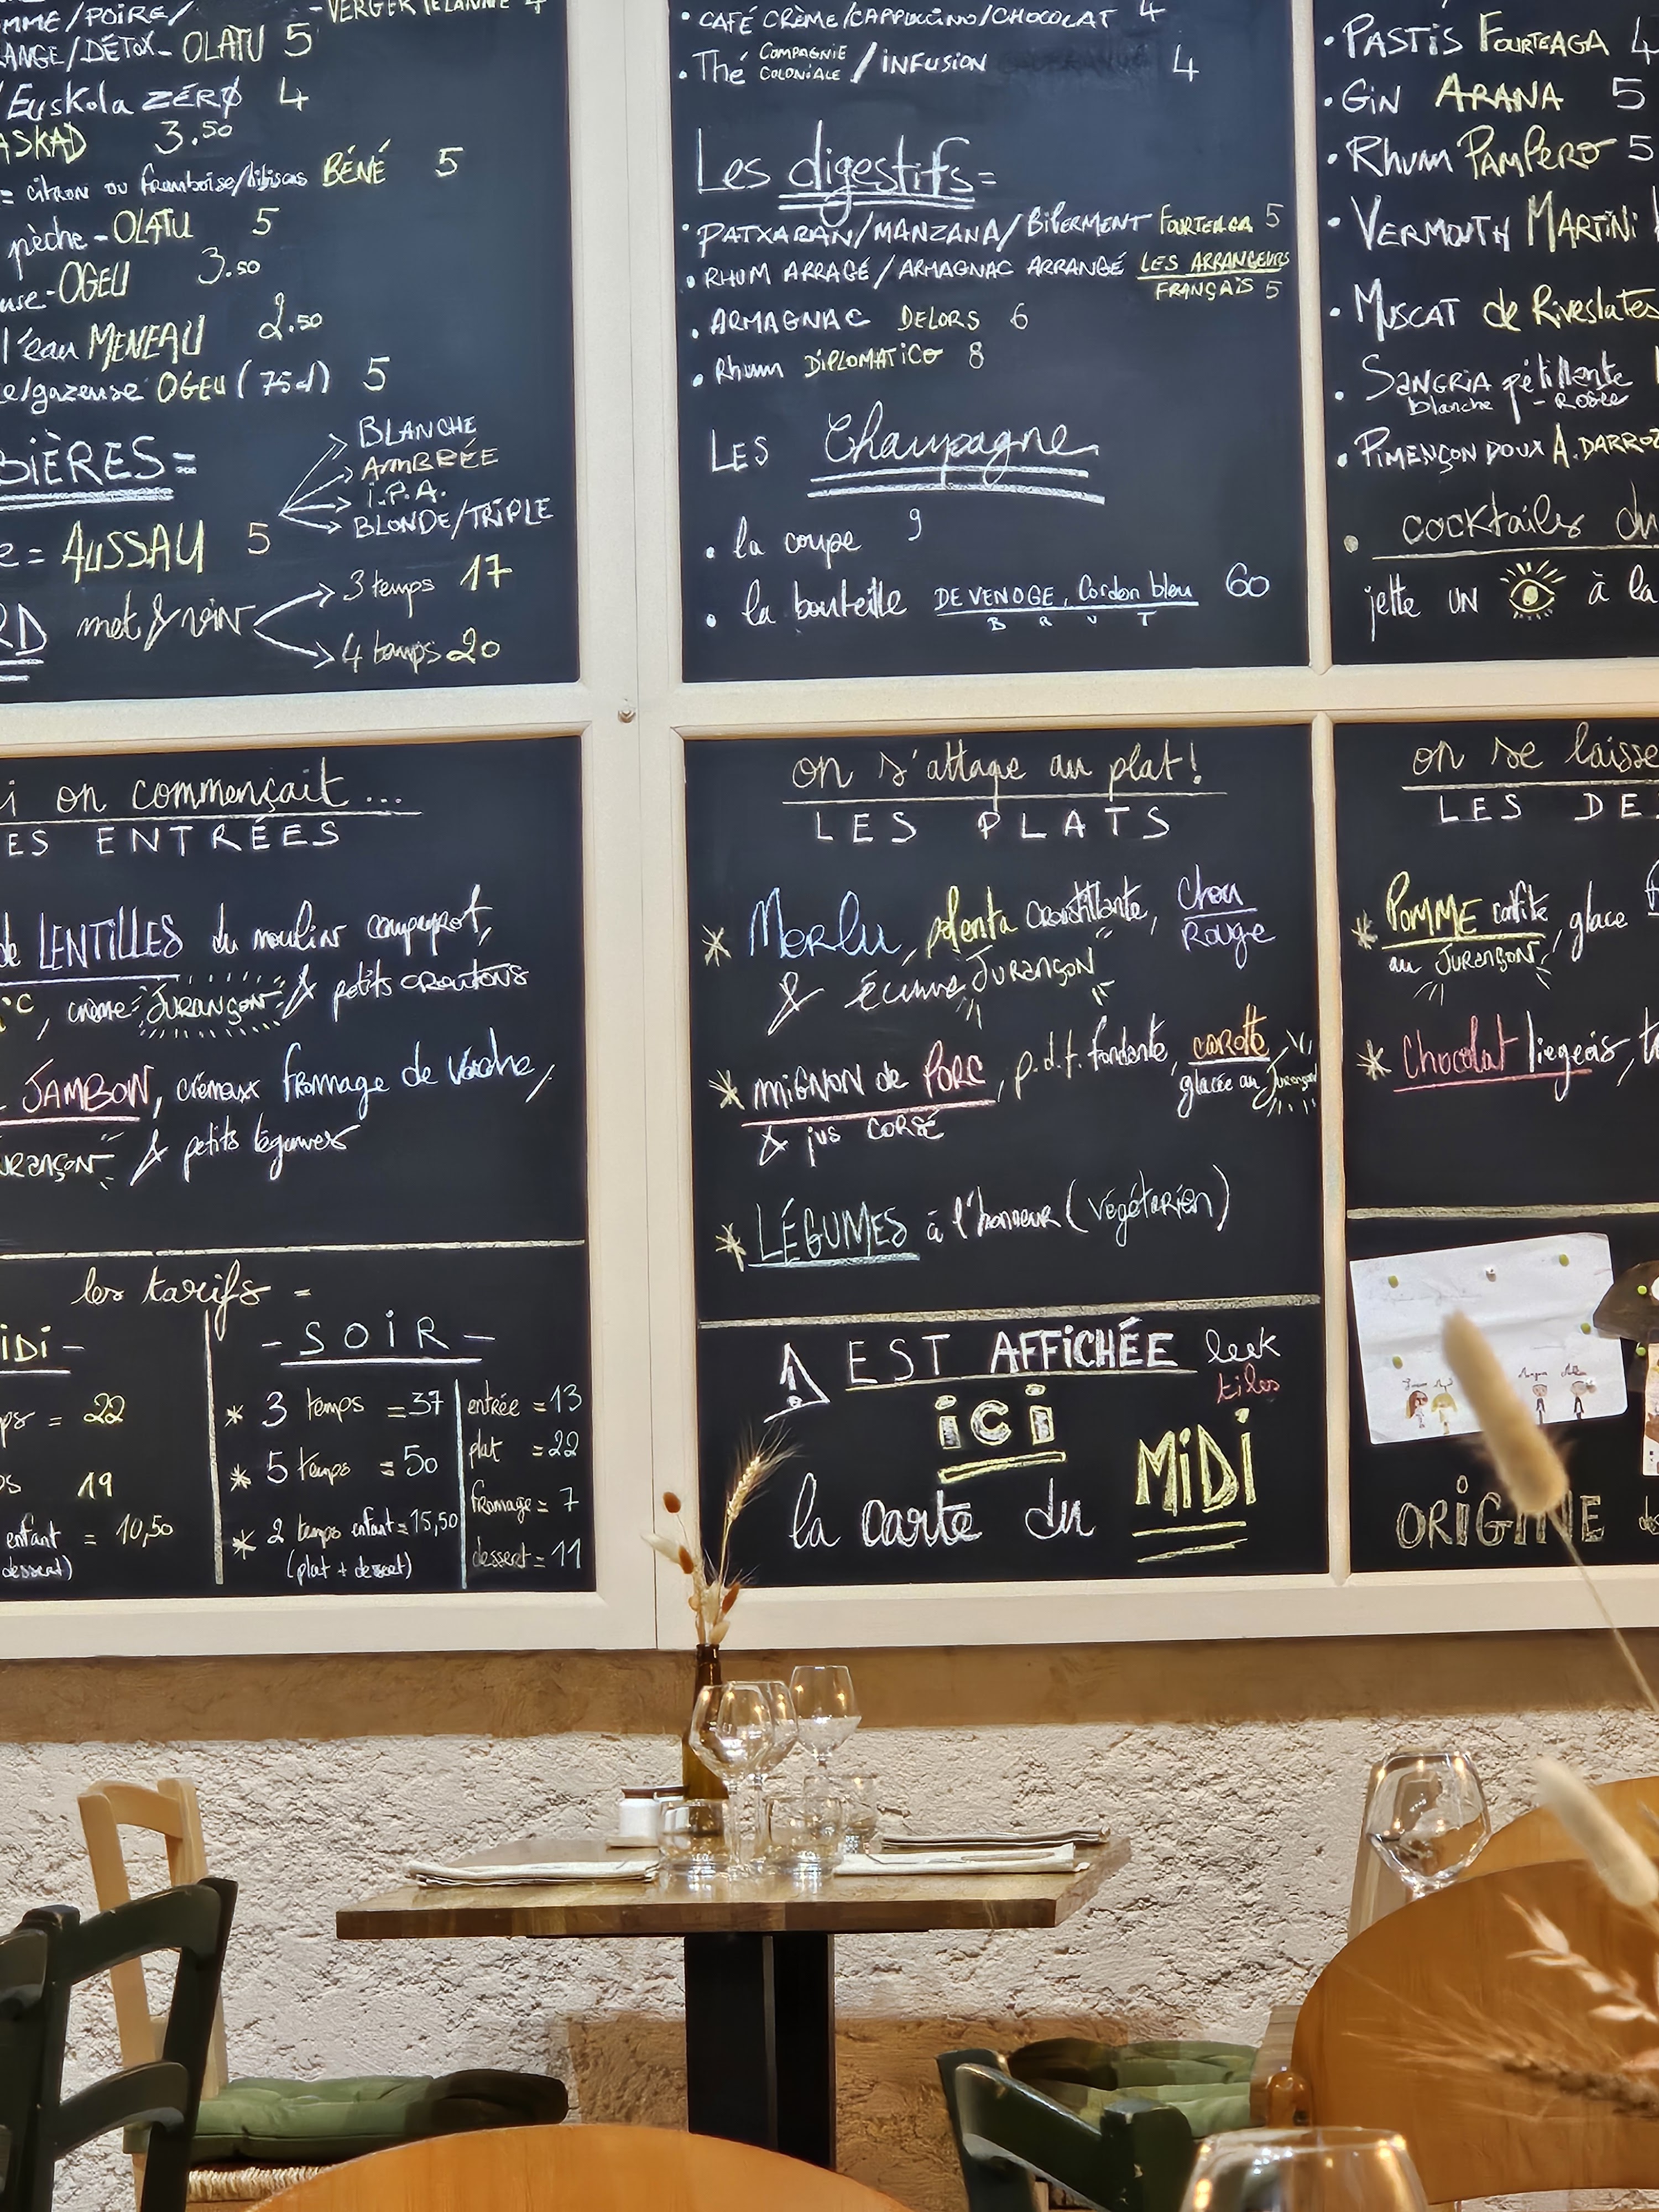 OMME/POIRE/ - VERGER
ANGE/DÉTOX - OLATU 5
Euskola ZÉRØ 4
ASKAD 3.50
= citron ou framboise/hibiscus BÉNÉ 5
pèche - OLATU 5
use - OGEU 3.50
l'eau MENEAU 2.50
e/gazeuse OGEU (75cl) 5
BIÈRES =
BLANCHE
AMBRÉE
I.P.A.
BLONDE/TRIPLE
e = AUSSAU 5
RD met & vin
3 temps 17
4 temps 20
• CAFÉ CRÈME/CAPPUCINO/CHOCOLAT 4
• Thé COMPAGNIE COLONIALE / INFUSION 4
Les digestifs =
• PATXARAN/MANZANA/BIPERMENT FOURTEAGA 5
• RHUM ARRAGÉ / ARMAGNAC ARRANGÉ LES ARRANGEURS
FRANÇAIS 5
• ARMAGNAC DELORS 6
• Rhum DIPLOMATICO 8
LES Champagne
• la coupe 9
• la bouteille DE VENOGE, Cordon bleu 60
BRUT
• PASTIS FOURTEAGA 4
• GIN ARANA 5
• Rhum PAMPERO 5
• VERMOUTH MARTINI
• MUSCAT de Riveslates
• SANGRIA pétillante
blanche - Rosée
• PIMENÇON DOUX A. DARROZ
• cocktails du
jette UN à la
i on commençait ...
ES ENTRÉES
de LENTILLES du moulin
°C, crème JURANÇON & petits croutons
JAMBON, crémeux fromage de vache,
URANÇON & petits légumes
les tarifs =
IDI -
ps = 22
ps 19
enfant = 10,50
dessert)
- SOIR -
* 3 temps = 37
* 5 temps = 50
* 2 temps enfant = 15,50
(plat + dessert)
entrée = 13
plat = 22
fromage = 7
dessert = 11
on s'attaque au plat !
LES PLATS
* Merlu, polenta croustillante, chou
Rouge
& écume JURANÇON
* MIGNON de PORC, p.d.t. fondante, carotte
glacée au Jurançon
& jus CORSÉ
* LÉGUMES à l'honneur (végétarien)
! EST AFFICHÉE
ici
la carte du MIDI
on se laisse
LES DE
* POMME confite, glace
au JURANÇON,
* Chocolat liegeois,
ORIGINE